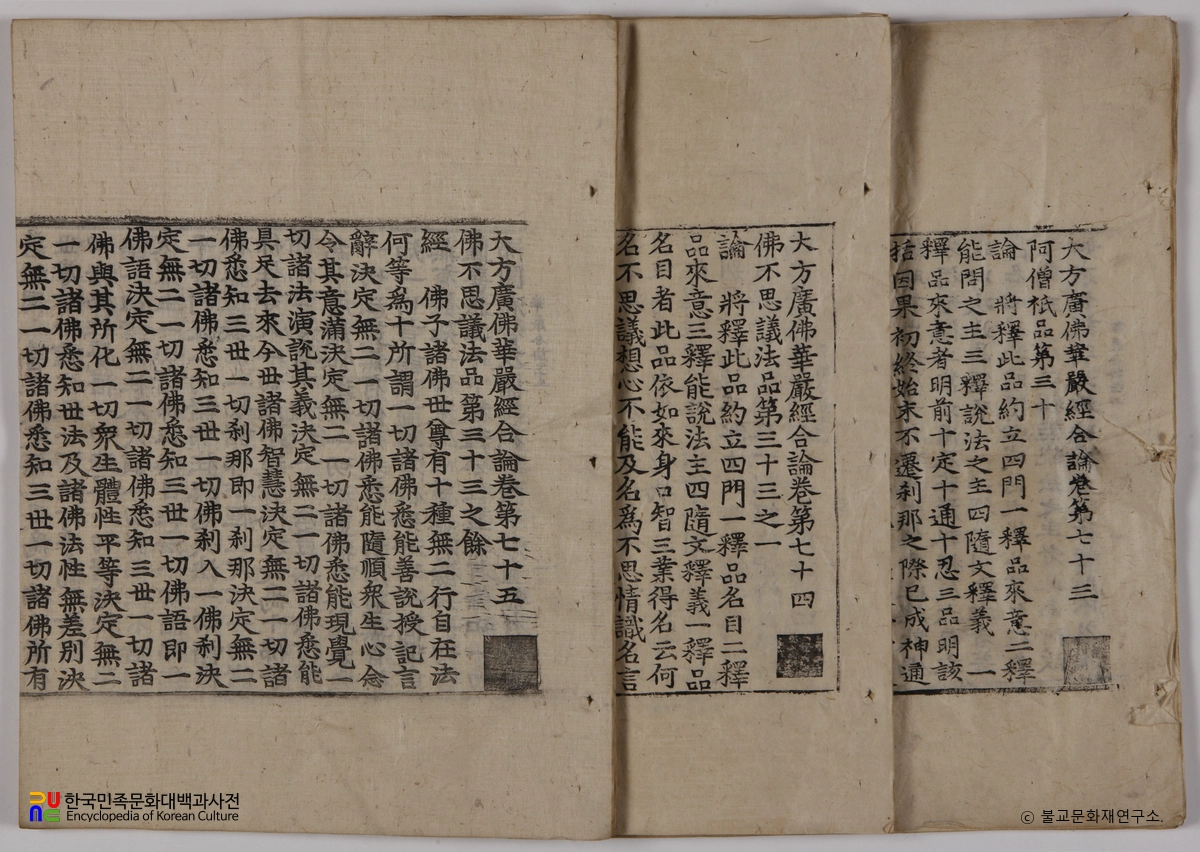 大方廣佛華嚴經合論卷第七十三
阿僧祇品第三十
論 將釋此品約立四門一釋品來意二釋
能問之主三釋說法之主四隨文釋義 一
釋品來意者明前十定十通十忍三品明該
括因果初終始末不遷剎那之際已成神通
大方廣佛華嚴經合論卷第七十四
佛不思議法品第三十三之一
論 將釋此品約立四門一釋品名目二釋
品來意三釋能說法主四隨文釋義一釋品
名目者此品依如來身口智三業得名云何
名不思議想心不能及名爲不思情識名言
大方廣佛華嚴經合論卷第七十五
佛不思議法品第三十三之餘
經 佛子諸佛世尊有十種無二行自在法
何等爲十所謂一切諸佛悉能善說授記言
辭決定無二一切諸佛悉能隨順衆生心念
令其意滿決定無二一切諸佛悉能現覺一
切諸法演說其義決定無二一切諸佛悉能
具足去來今世諸佛智慧決定無二一切諸
佛悉知三世一切剎那即一剎那決定無二
一切諸佛悉知三世一切佛剎入一佛剎決
定無二一切諸佛悉知三世一切佛語即一
佛語決定無二一切諸佛悉知三世一切諸
佛與其所化一切衆生體性平等決定無二
一切諸佛悉知世法及諸佛法性無差別決
定無二一切諸佛悉知三世一切諸佛所有
한국민족문화대백과사전
Encyclopedia of Korean Culture
© 불교문화재연구소.